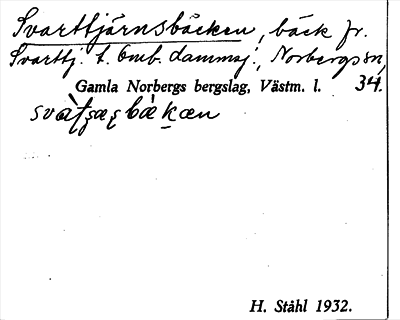 Svarttjärnsbäcken, bäck fr.
Svarttj. t. Omb. dammsj., Norbergs sn,
Gamla Norbergs bergslag, Västm. l. 34.
H. Ståhl 1932.